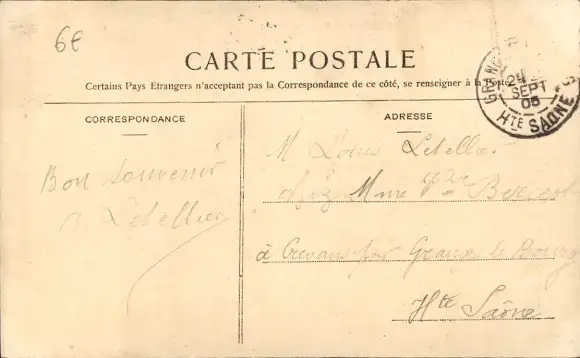 6€
CARTE POSTALE
Certains Pays Etrangers n'acceptant pas la Correspondance de ce côté, se renseigner à la Poste
CORRESPONDANCE
ADRESSE
GRAN
24
SEPT
05
HTE SAONE
Bon souvenir
Letellier
M Louis Letellier
chez Mme
à Crevans par Granges le Bourg
Hte Saône